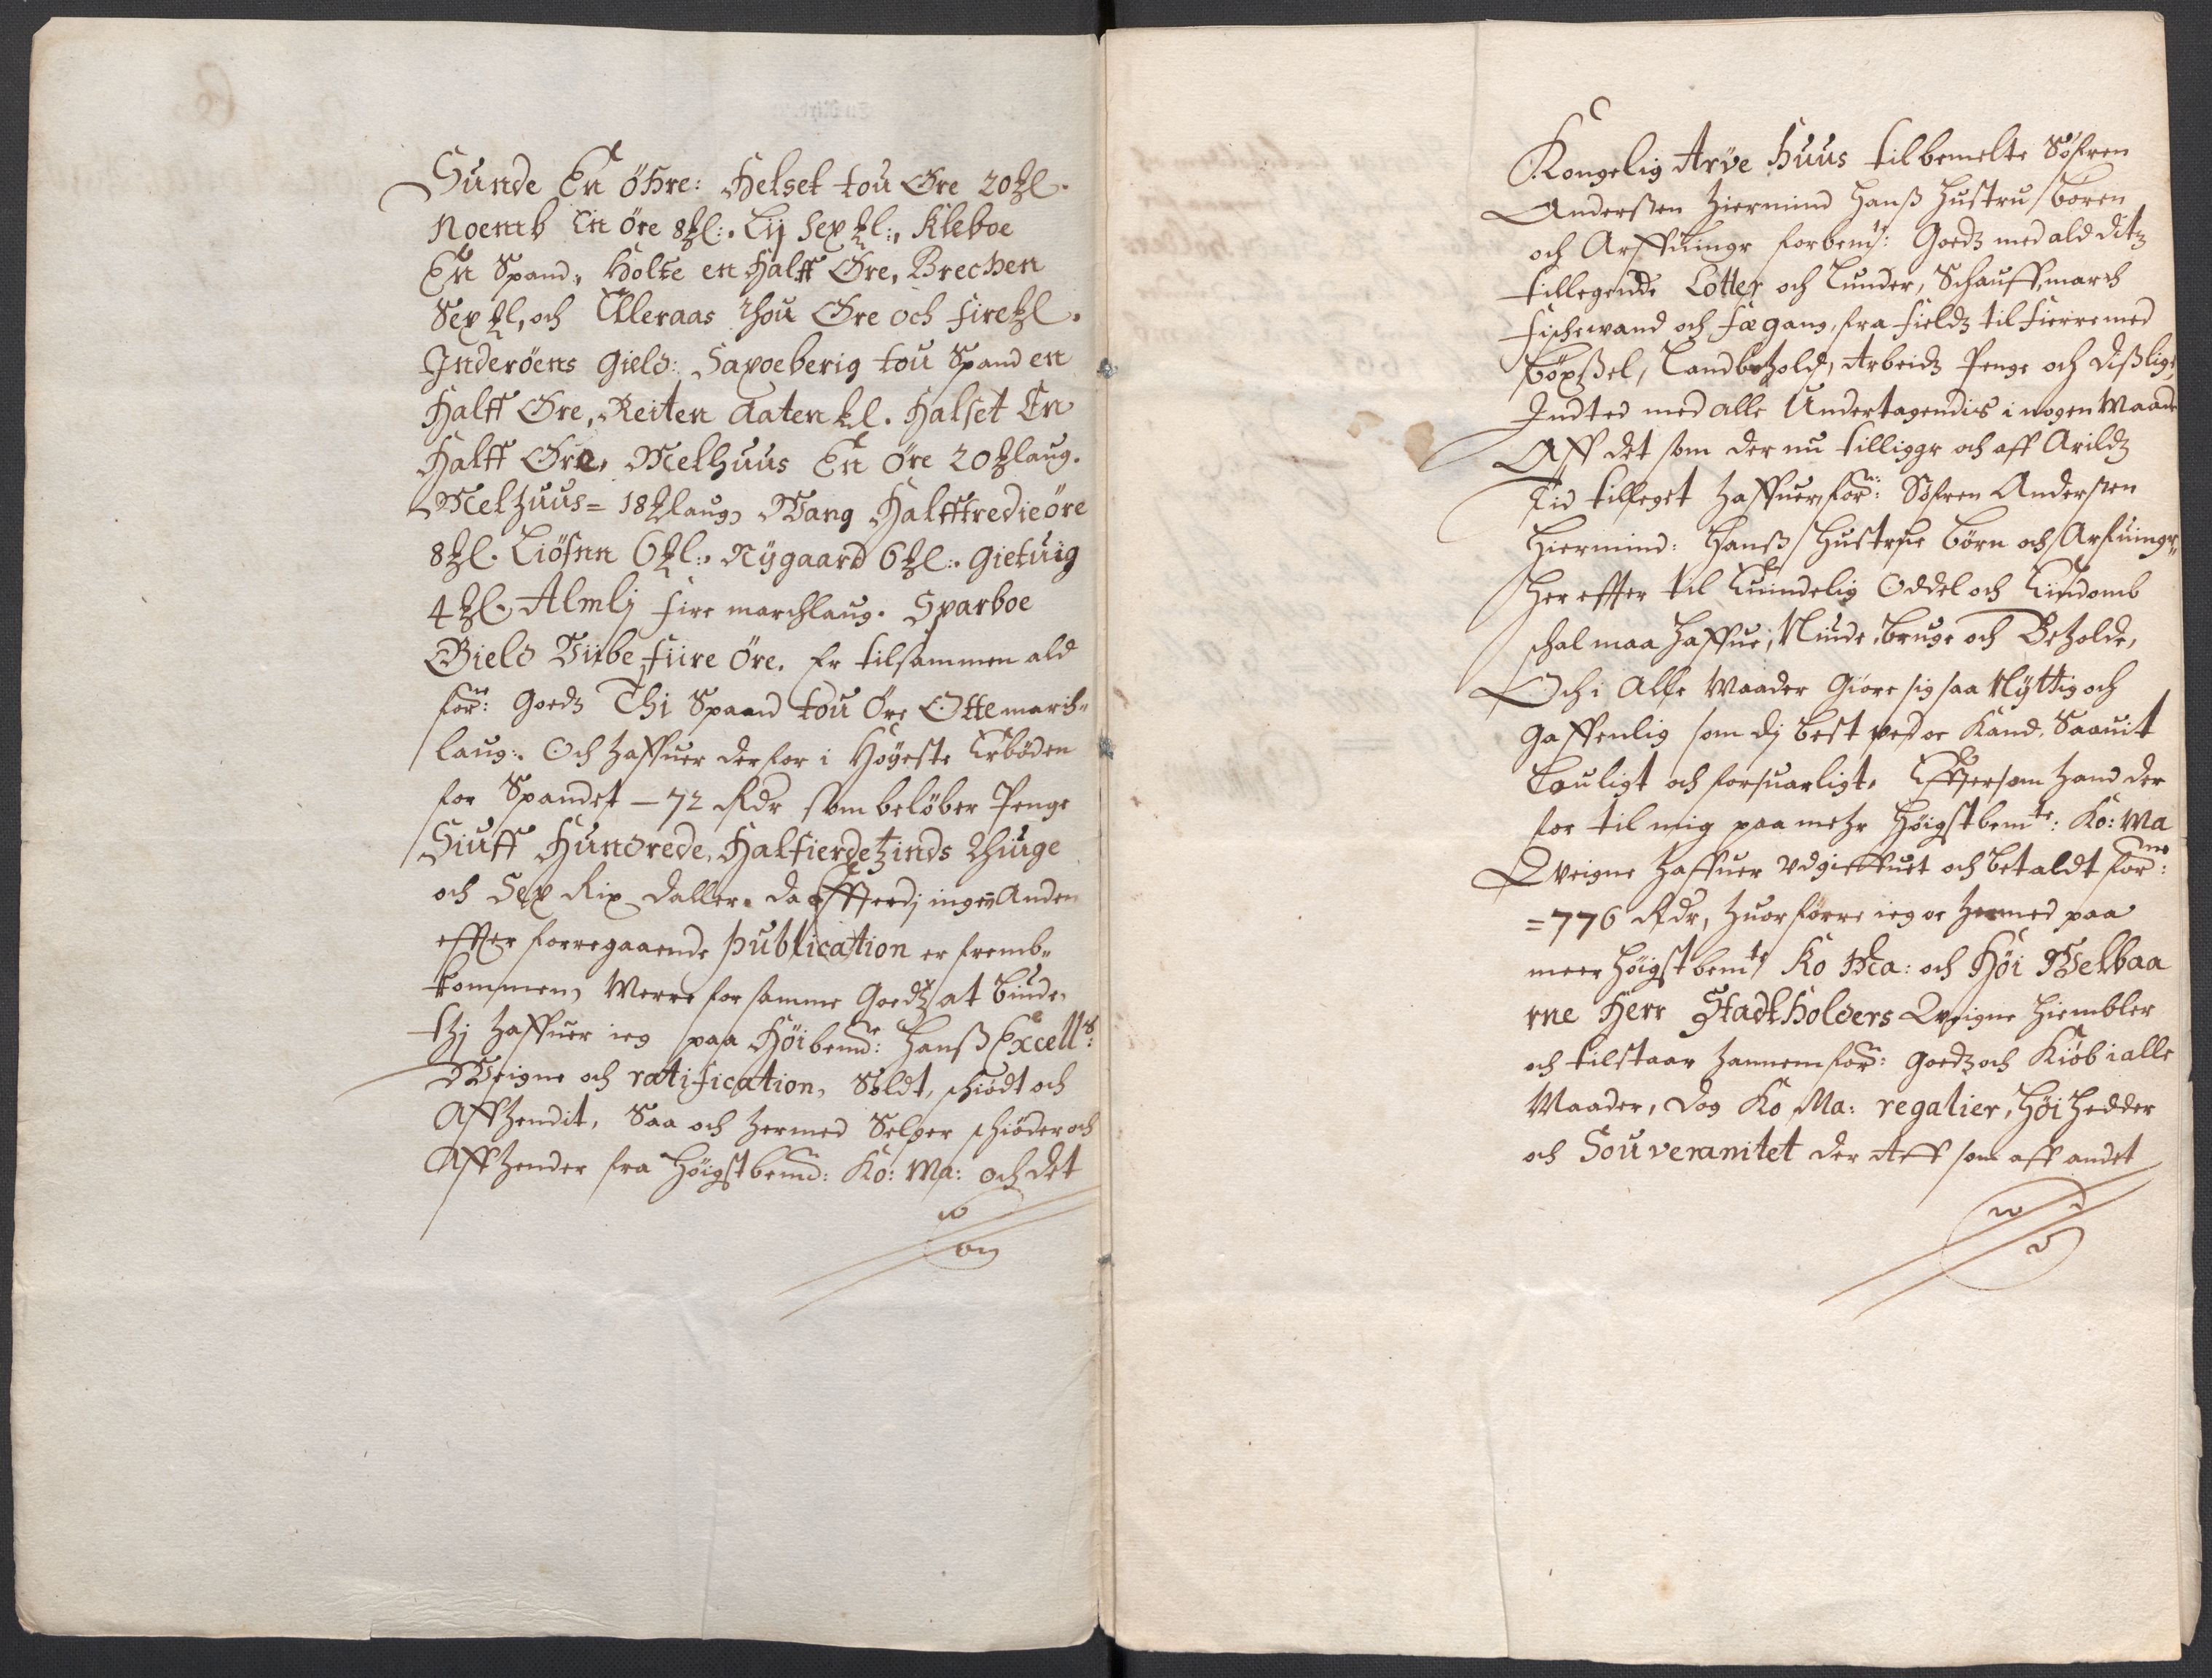 Sunde En öhre: Helset tou Øre 20 ℔l.
Noemb En öre 8 ℔l:. Lij Sex ℔l:, Kleboe
En Spand, Holte en Halff Øre, Brechen
Sex ℔l, och Ulleraas thou Øre och fire ℔l.
Inderöens Gield: Saxoeberig tou Spand en
Halff Øre, Reiten Aaten ℔l. Halset En
Halff Øre, Melhuus En Øre 20 ℔laug.
Melhuus = 18 ℔laug, Wang Halfftredie öre
8 ℔l. Liösnn 6 ℔l:, Nygaard 6 ℔l:. Gietuig
4 ℔l. Almlj fire marchlaug. Sparboe
Gield Viibe fiire Öre. Er tilsammen ald
forne: Goedz Thi Spaand tou Öre Otte march-
laug:. Och haffuer derfor i Högeste Erböden
for Spandet – 72 Rdr som belöber Penge
Siuff Hundrede, Halfierdetzinds thiuge
och Sex Rix daller. da effterdj ingen Anden
effter forregaaende publication er fremb-
kommen, Merre for samme Goedz at biude,
thj haffuer ieg paa Höibemde: Hanß Excell:
Weigne och ratification, Soldt, schiödt och
Affhendit, Saa och hermed Selger schiöder och
Affhender fra Höigstbemd: Ko: Ma: och det
Kongelig Arve Huus til bemelte Söfren
Anderßen hiermind Hanß Hustru Boren
och Arffuinger forbem: Goedz med ald ditz
tillegende Lotter och Lunder, Schauff, march
fischevand och fægang, fra Fieldz til Fierre med
Böxßel, Landbohold, Arbeidz Penge och dißlige
Indted med alle Undertagendis i nogen Maade
Aff det som der nu tilligger och aff Arildz
Tid tilleget haffuer, forne: Söfren Anderßen
Hiermind: Hanß Hustrue Börn och Arfuinger
Her effter til Euindelig Oddel och Eiindomb
schal maa Haffue, Niude, bruge och Beholde,
Och i Alle Maader Giöre sig saa Nyttig och
Gaffenlig som dj best ved oc Kand, Saauit
Louligt och forsuarligt. Efftersom hand der
for til mig paa mehr Höigstbemte: Ko: Ma
Weigne haffuer udgieffuet och betaldt forne:
= 776 Rdr, huor förre ieg oc hermed paa
meer höigstbemte Ko Ma: och Höi Welbaa
rne Herr Stadtholders Weigne hiembler
och tilstaar hannem for: Goedz och Kiöb i alle
Maader, dog Ko Ma: regalier, Höi Hedder
och Souveranitet der Aff som aff andet